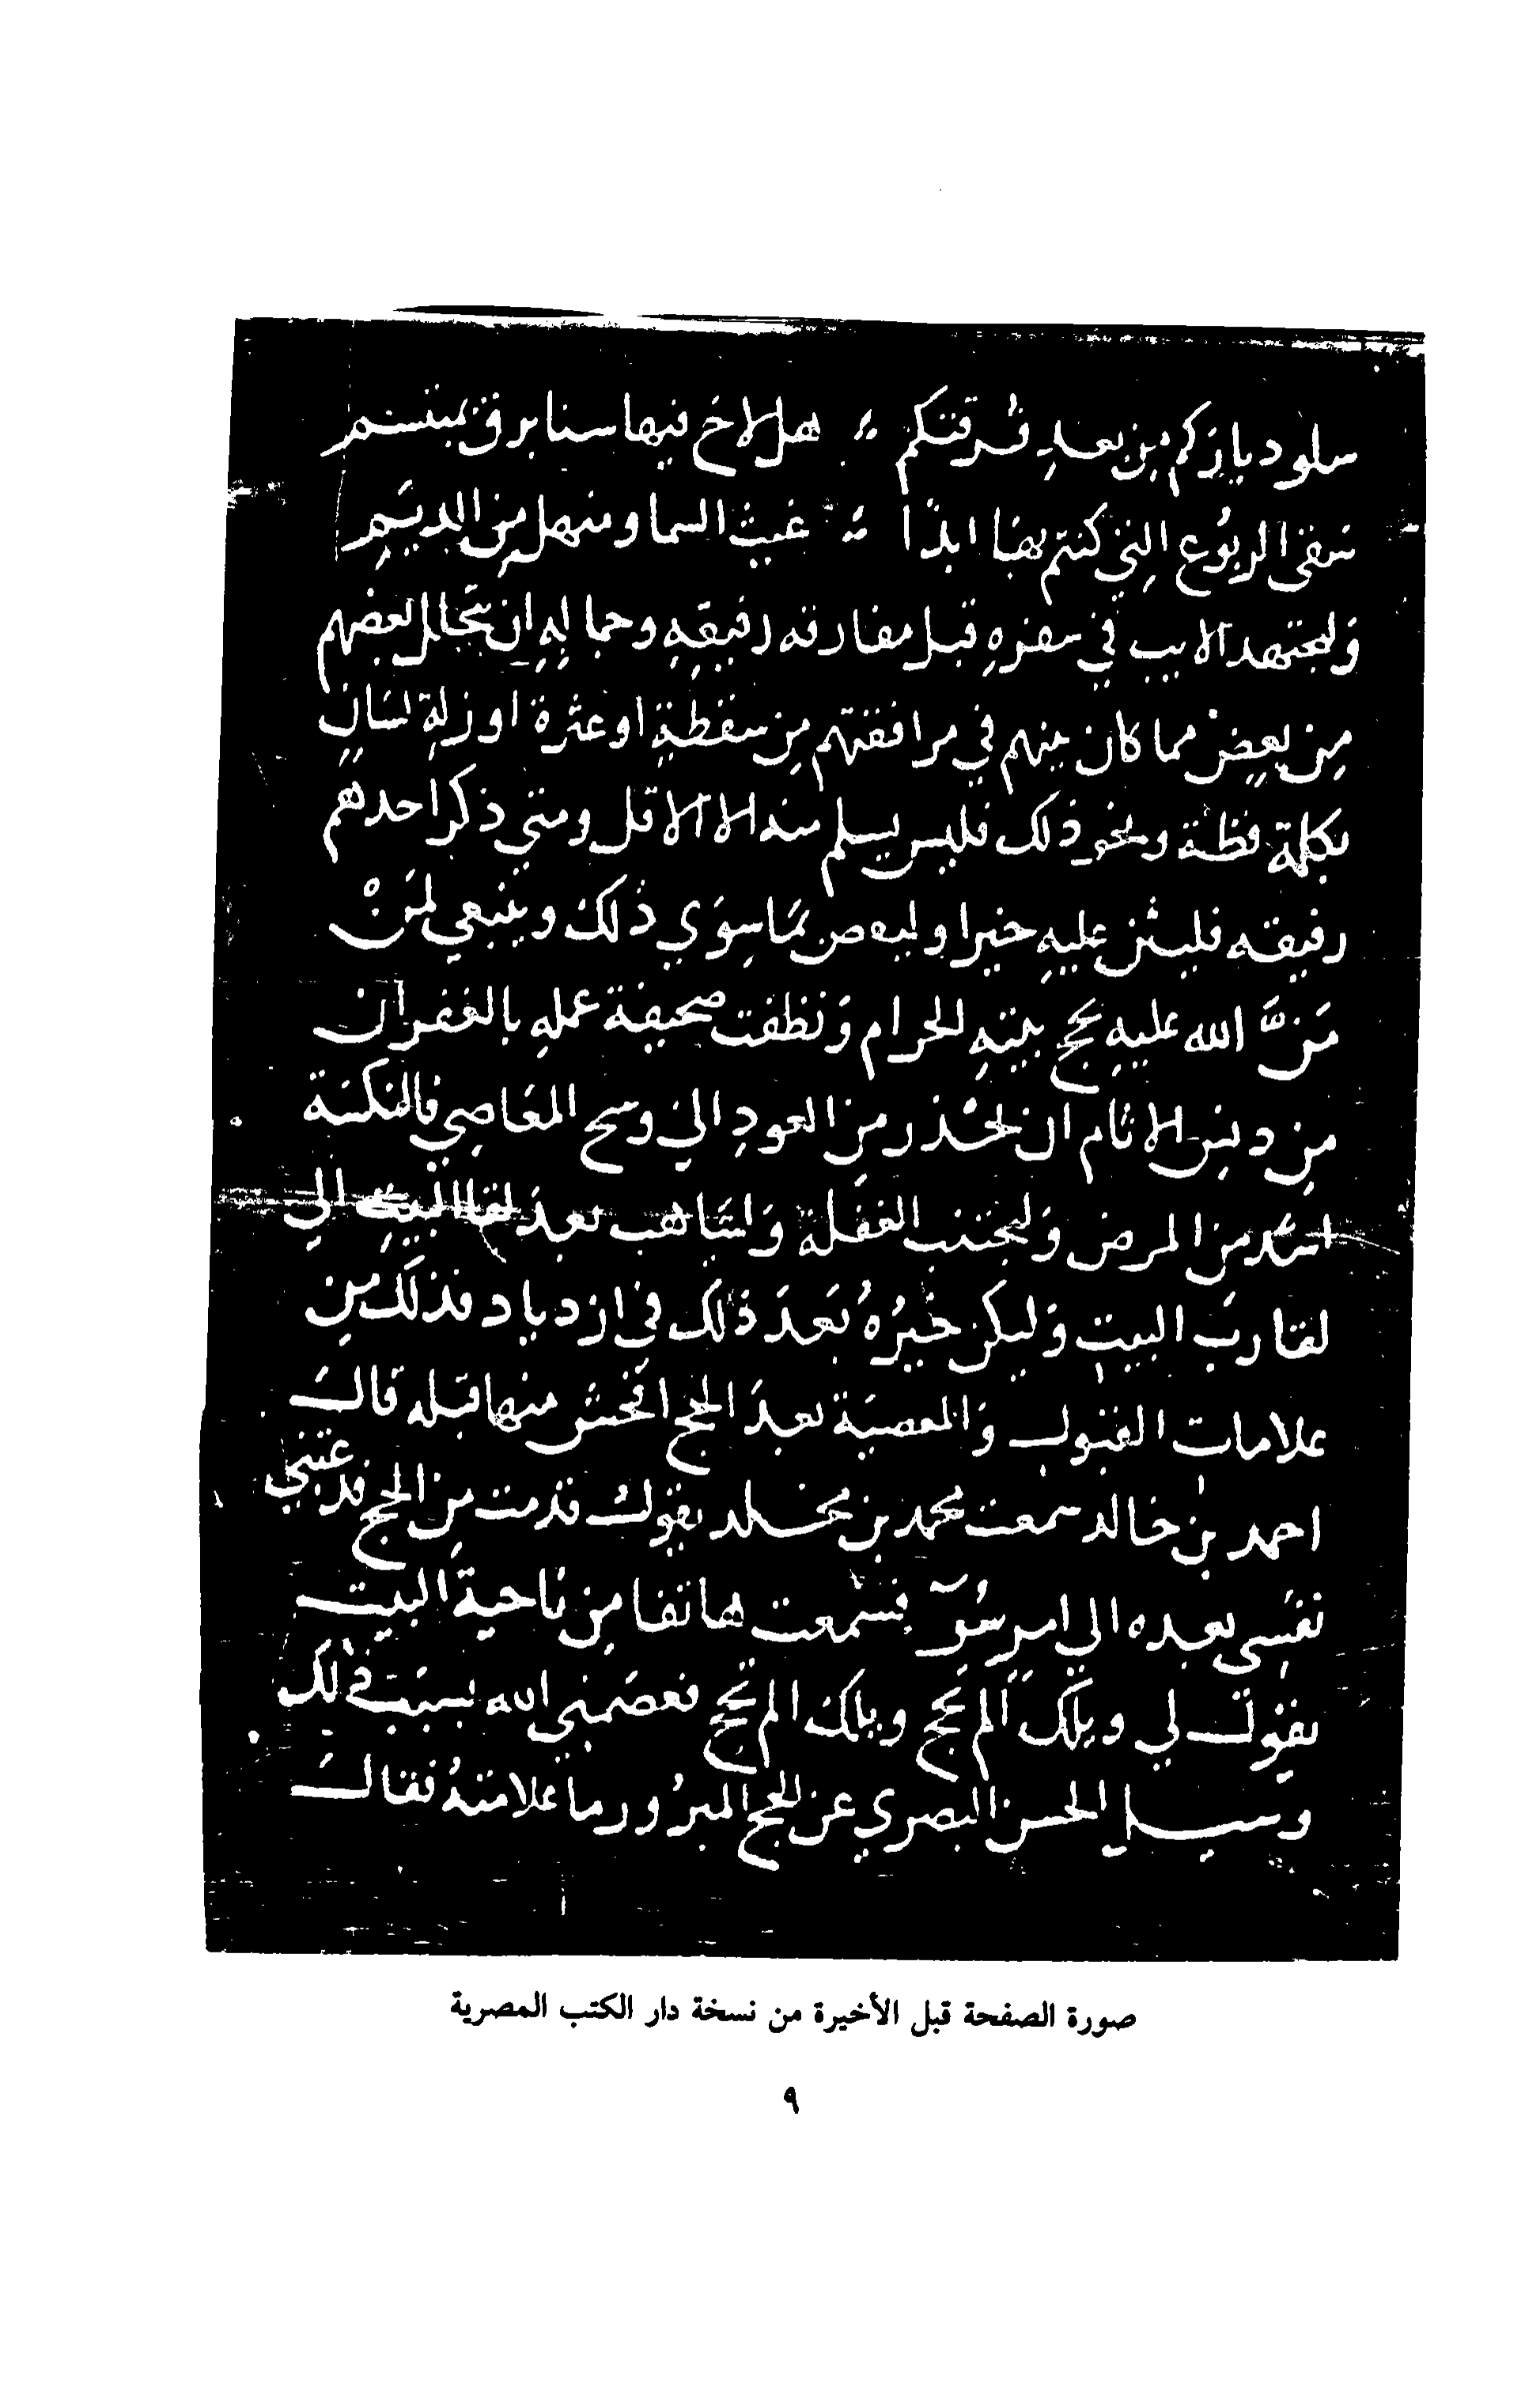 سلوا دياركم من بعد فرقتكم ؞ هل لاح فيها سنا برق بمبتسم
سقى الربوع التي كنتم بها ابدا ؞ غيث السما ومنهل من الديم
وليجتهد الايب في سفره قبل مفارقته رفيقه وحماله ان يتحالل بعضهم
من بعض مما كان بينهم في مرافقتهم من سقطة او عثرة او زلة لسان
بكلمة فظة ونحو ذلك فليس يسلم منه الا الاقل ومتى ذكر احدهم
رفيقه فليثن عليه خيرا وليغض عما سوي ذلك وينبغي لمن
من الله عليه بحج بيته الحرام ونظفت صحيفة عمله بالغفران
من دنس الاثام ان يحذر من العود الى وسخ المعاصي فالنكسة
اشد من المرض وليجتنب الغفلة وليتاهب بعد لقا البيت الى
لقا رب البيت وليكن خيره بعد ذلك في ازدياد فذلك من
علامات القبول والمعصية بعد الحج افحش منها قبله قال
احمد بن خالد سمعت محمد بن مخلد يقول قدمت من الحج فدعتني
نفسي بعده الى امر سوء فسمعت هاتفا من ناحية البيت
يقول لي ويلك الم تحج ويلك الم تحج فعصمني الله بسبب ذلك
وسيل الحسن البصري عن الحج المبرور ما علامته فقال
صورة الصفحة قبل الأخيرة من نسخة دار الكتب المصرية
٩